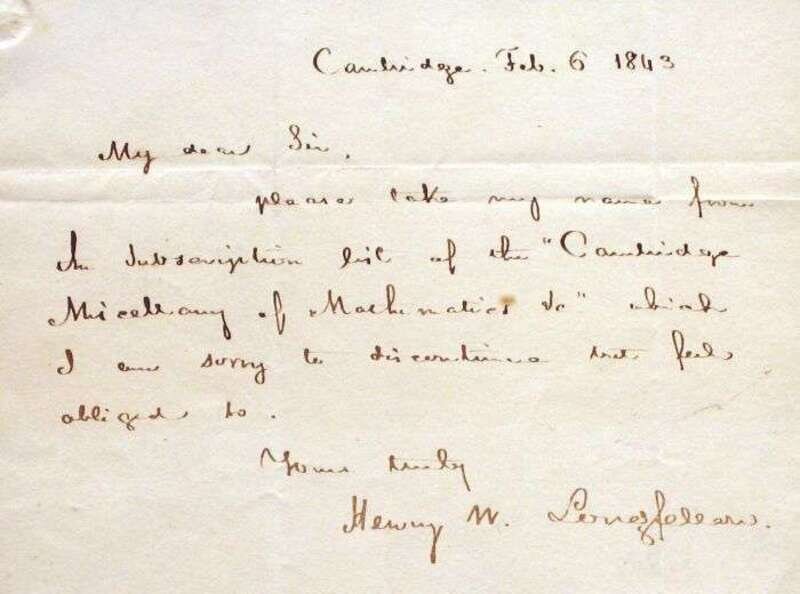 Cambridge. Feb. 6 1843
My dear Sir,
please take my name from
the subscription list of the "Cambridge
Miscellany of Mathematics &c" which
I am sorry to discontinue but feel
obliged to.
Yours truly
Henry W. Longfellow.